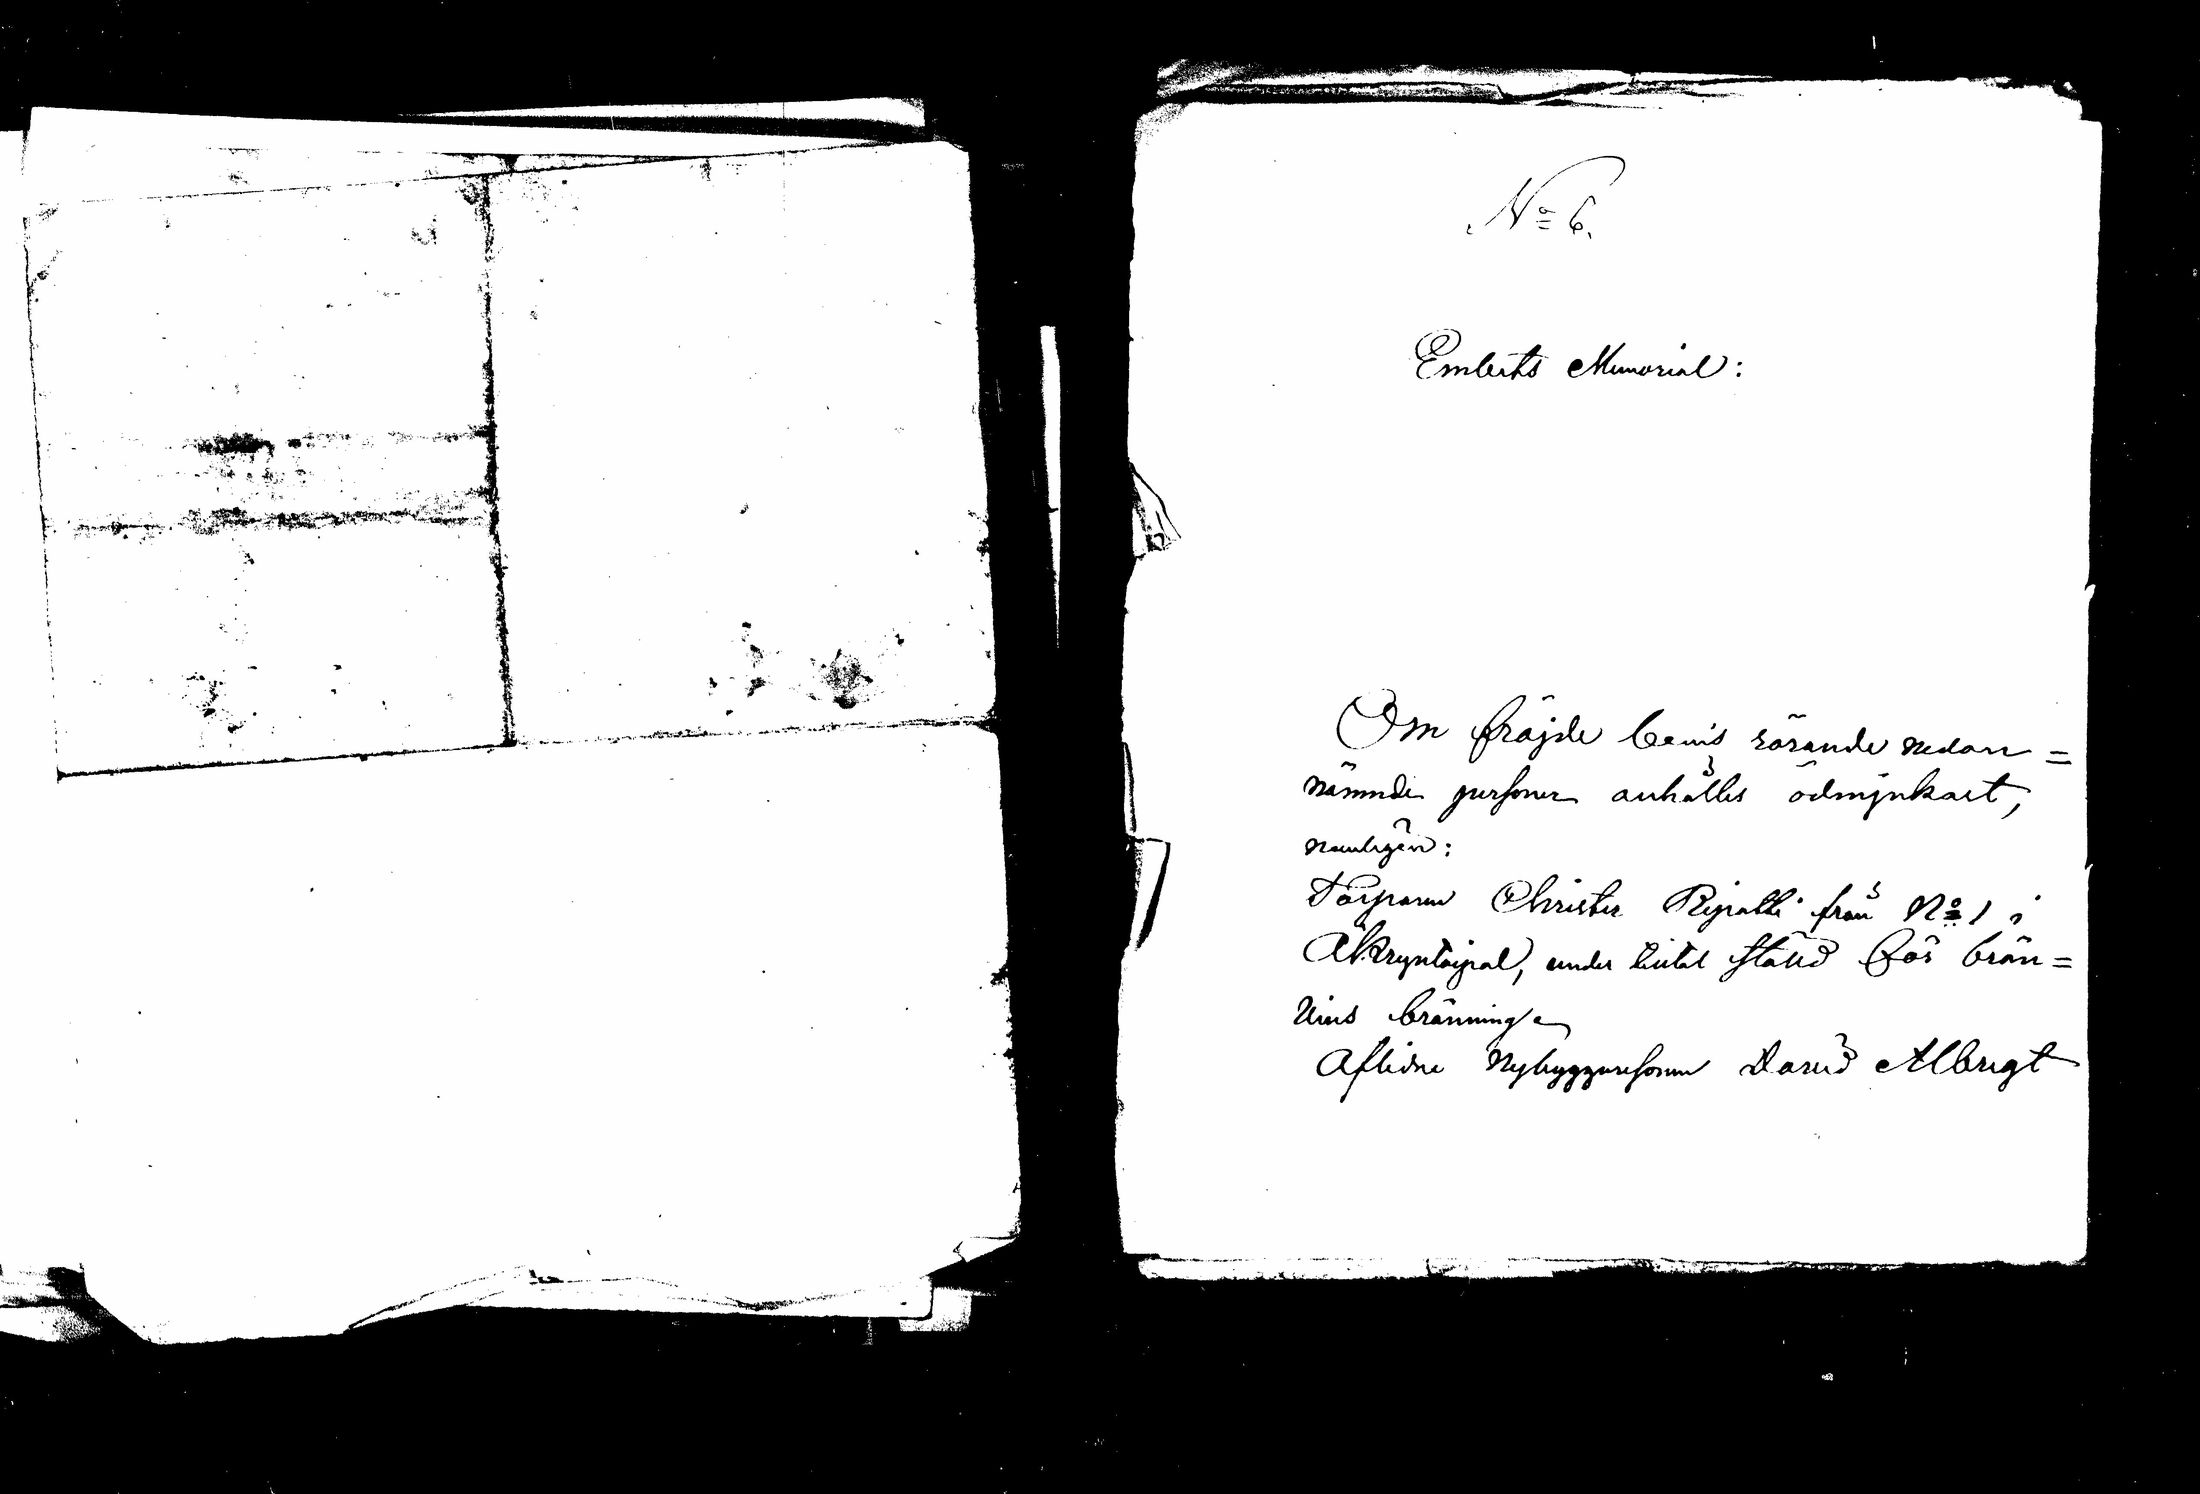 No 6.
Embets Memorial:
Om fräjde bevis rörande nedan=
nämnde personer anhålles ödmjukast,
nemligen:
Torparen Christer Ripatti från No 1 i
Äkryntaipal, under tiltal stäld för brän=
vins bränning
Aflidne Nybyggaresonen David Albregt